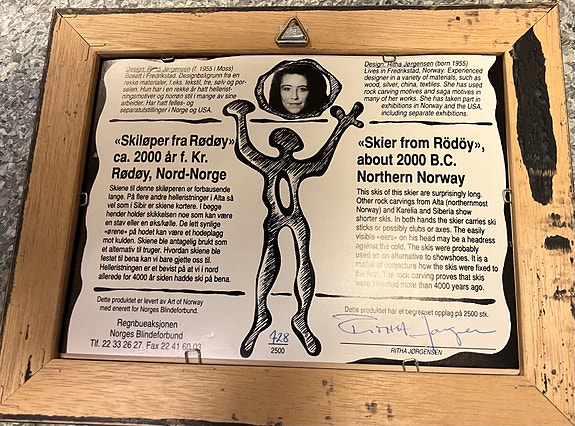 Design: Ritha Jørgensen (f. 1955 i Moss)
Bosatt i Fredrikstad. Designbakgrunn fra en
rekke materialer, f.eks. tekstil, tre, sølv og por-
selen. Hun har i en rekke år hatt hellerist-
ningsmotiver og norrøn stil i mange av sine
arbeider. Har hatt felles- og
separatutstillinger i Norge og USA.
«Skiløper fra Rødøy»
ca. 2000 år f. Kr.
Rødøy, Nord-Norge
Skiene til denne skiløperen er forbausende
lange. På flere andre helleristninger i Alta så
vel som i Sibir er skiene kortere. I begge
hender holder skikkelsen noe som kan være
en stav eller en øks/kølle. De lett synlige
«ørene» på hodet kan være et hodeplagg
mot kulden. Skiene ble antagelig brukt som
et alternativ til truger. Hvordan skiene ble
festet til bena kan vi bare gjette oss til.
Helleristningen er et bevist på at vi i nord
allerede for 4000 år siden hadde ski på bena.
Dette produktet er levert av Art of Norway
med enerett for Norges Blindeforbund.
Regnbueaksjonen
Norges Blindeforbund
Tlf. 22 33 26 27. Fax 22 41 60 03
728
2500
Design: Ritha Jørgensen (born 1955)
Lives in Fredrikstad, Norway. Experienced designer
in a variety of materials, such as
wood, silver, china, textiles. She has used
rock carving motives and saga motives in
many of her works. She has taken part in
exhibitions in Norway and the USA,
including separate exhibitions.
«Skier from Rödöy»,
about 2000 B.C.
Northern Norway
This skis of this skier are surprisingly long.
Other rock carvings from Alta (northernmost
Norway) and Karelia and Siberia show
shorter skis. In both hands the skier carries ski
sticks or possibly clubs or axes. The easily
visible «ears» on his head may be a headress
against the cold. The skis were probably
used as an alternative to showshoes. It is a
matter of conjecture how the skis were fixed to
the feet. The rock carving proves that skis
were invented more than 4000 years ago.
Dette produktet har et begrenset opplag på 2500 stk.
Ritha Jørgensen
RITHA JØRGENSEN